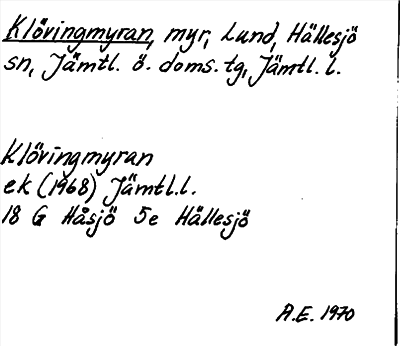 Klövingmyran, myr, Lund, Hällesjö
sn, Jämtl. ö. doms. tg, Jämtl. l.
Klövingmyran
ek (1968) Jämtl.l.
18 G Håsjö 5e Hällesjö
A.E. 1970